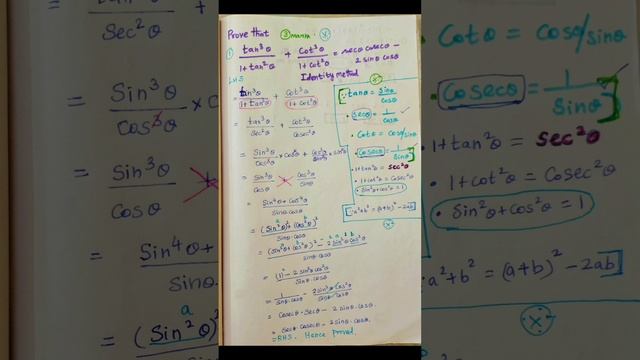 Prove that 3 marks
1) tan³θ/1+tan²θ + Cot³θ/1+cot²θ = secθ cosecθ − 2 sinθ cosθ
Identity method
LHS
= tan³θ/1+tan²θ + Cot³θ/1+cot²θ
= tan³θ/Sec²θ + Cot³θ/Cosec²θ
= Sin³θ/Cos³θ × Cos²θ + Cos³θ/Sin³θ × Sin²θ
= Sin³θ/Cosθ + Cos³θ/Sinθ
= Sin⁴θ + Cos⁴θ/Sinθ·cosθ
= (Sin²θ)² + (Cos²θ)²/Sinθ·cosθ
a b
= (Sin²θ + Cos²θ)² − 2 Sin²θ Cos²θ/Sinθ·cosθ
2 a b
= (1)² − 2 sin²θ cos²θ/Sinθ·cosθ
= 1/Sinθ·cosθ − 2Sin²θ Cos²θ/Sinθ·Cosθ
= Cosecθ·Secθ − 2Sinθ·cosθ
= Secθ·Cosecθ − 2Sinθ·cosθ
= RHS. Hence Proved
∵ tanθ = Sinθ/Cosθ
• Secθ = 1/Cosθ
• Cotθ = Cosθ/Sinθ
• Cosecθ = 1/Sinθ
• 1+tan²θ = sec²θ
• 1+cot²θ = Cosec²θ
• Sin²θ+Cos²θ = 1
∵ a²+b² = (a+b)² − 2ab
tan³θ
Sec²θ
= Sin³θ/Cos³θ × Co
= Sin³θ/Cosθ
= Sin⁴θ +
Sin
a
= (Sin²θ)
Cotθ = Cosθ/sinθ
• Cosecθ = 1/Sinθ
• 1+tan²θ = sec²θ
• 1+cot²θ = Cosec²θ
• Sin²θ+Cos²θ = 1
a²+b² = (a+b)² − 2ab